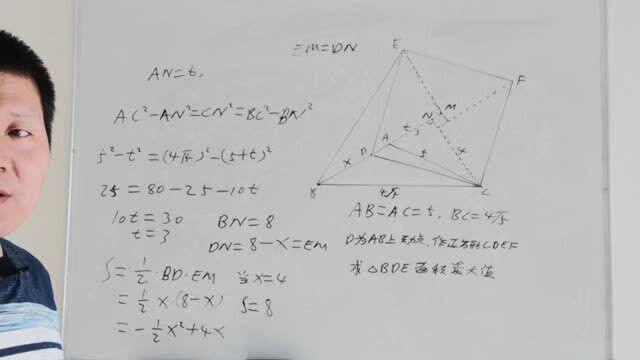 EM=DN
AN=t,
AC²-AN²=CN²=BC²-BN²
5²-t²=(4√5)²-(5+t)²
25=80-25-10t
10t=30
t=3
BN=8
DN=8-x=EM
S=1/2·BD·EM
当x=4
=1/2 x·(8-x)
S=8
=-1/2x²+4x
E
F
M
N
A
t=3
D
x
5
4
B
4√5
C
AB=AC=5, BC=4√5
D为AB上动点,作正方形CDEF
求△BDE面积最大值